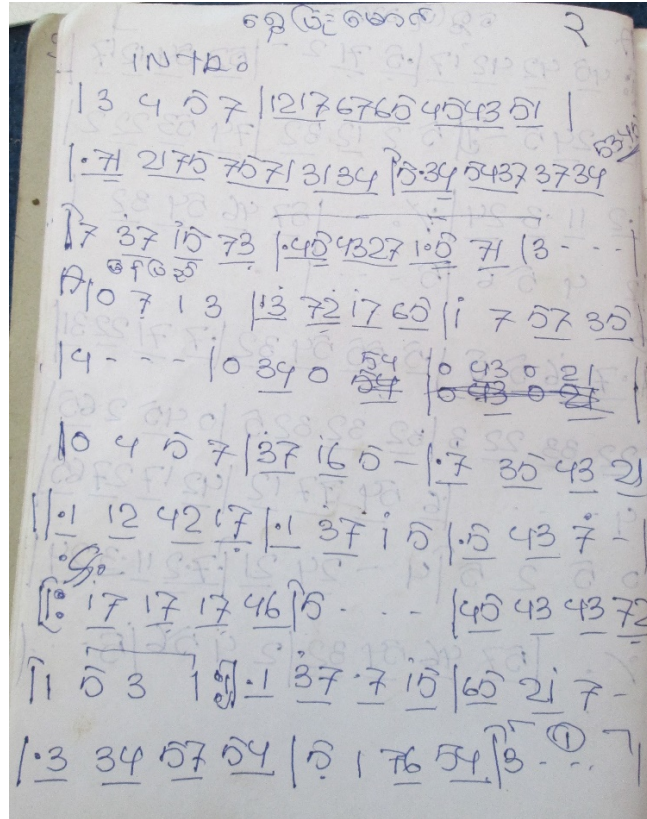 ရွှေပြည်မောက် ၃
INTRO
|3 4 5 7 |1217 6765 4543 51 |
|·71 2175 7571 3134 |5·34 5437 3734 5345
|7 37 15 73 |·45 4327 1·5 71 |3 - - - |
A|0 7 1 3 |13 72 17 65 |1 7 57 35 |
|4 - - - |0 34 0 54 |0 43 0 21
|0 4 5 7 |37 16 5 - |·7 35 43 21
||·1 12 42 17 |·1 37 1 5 |·5 43 7 - |
|: 17 17 17 46 |5 - - - |45 43 43 72
|1 5 3 1 :| ·1 37 ·7 15 |65 21 7 -
|·3 34 57 54 |5 1 76 54 |3 - - - ① |